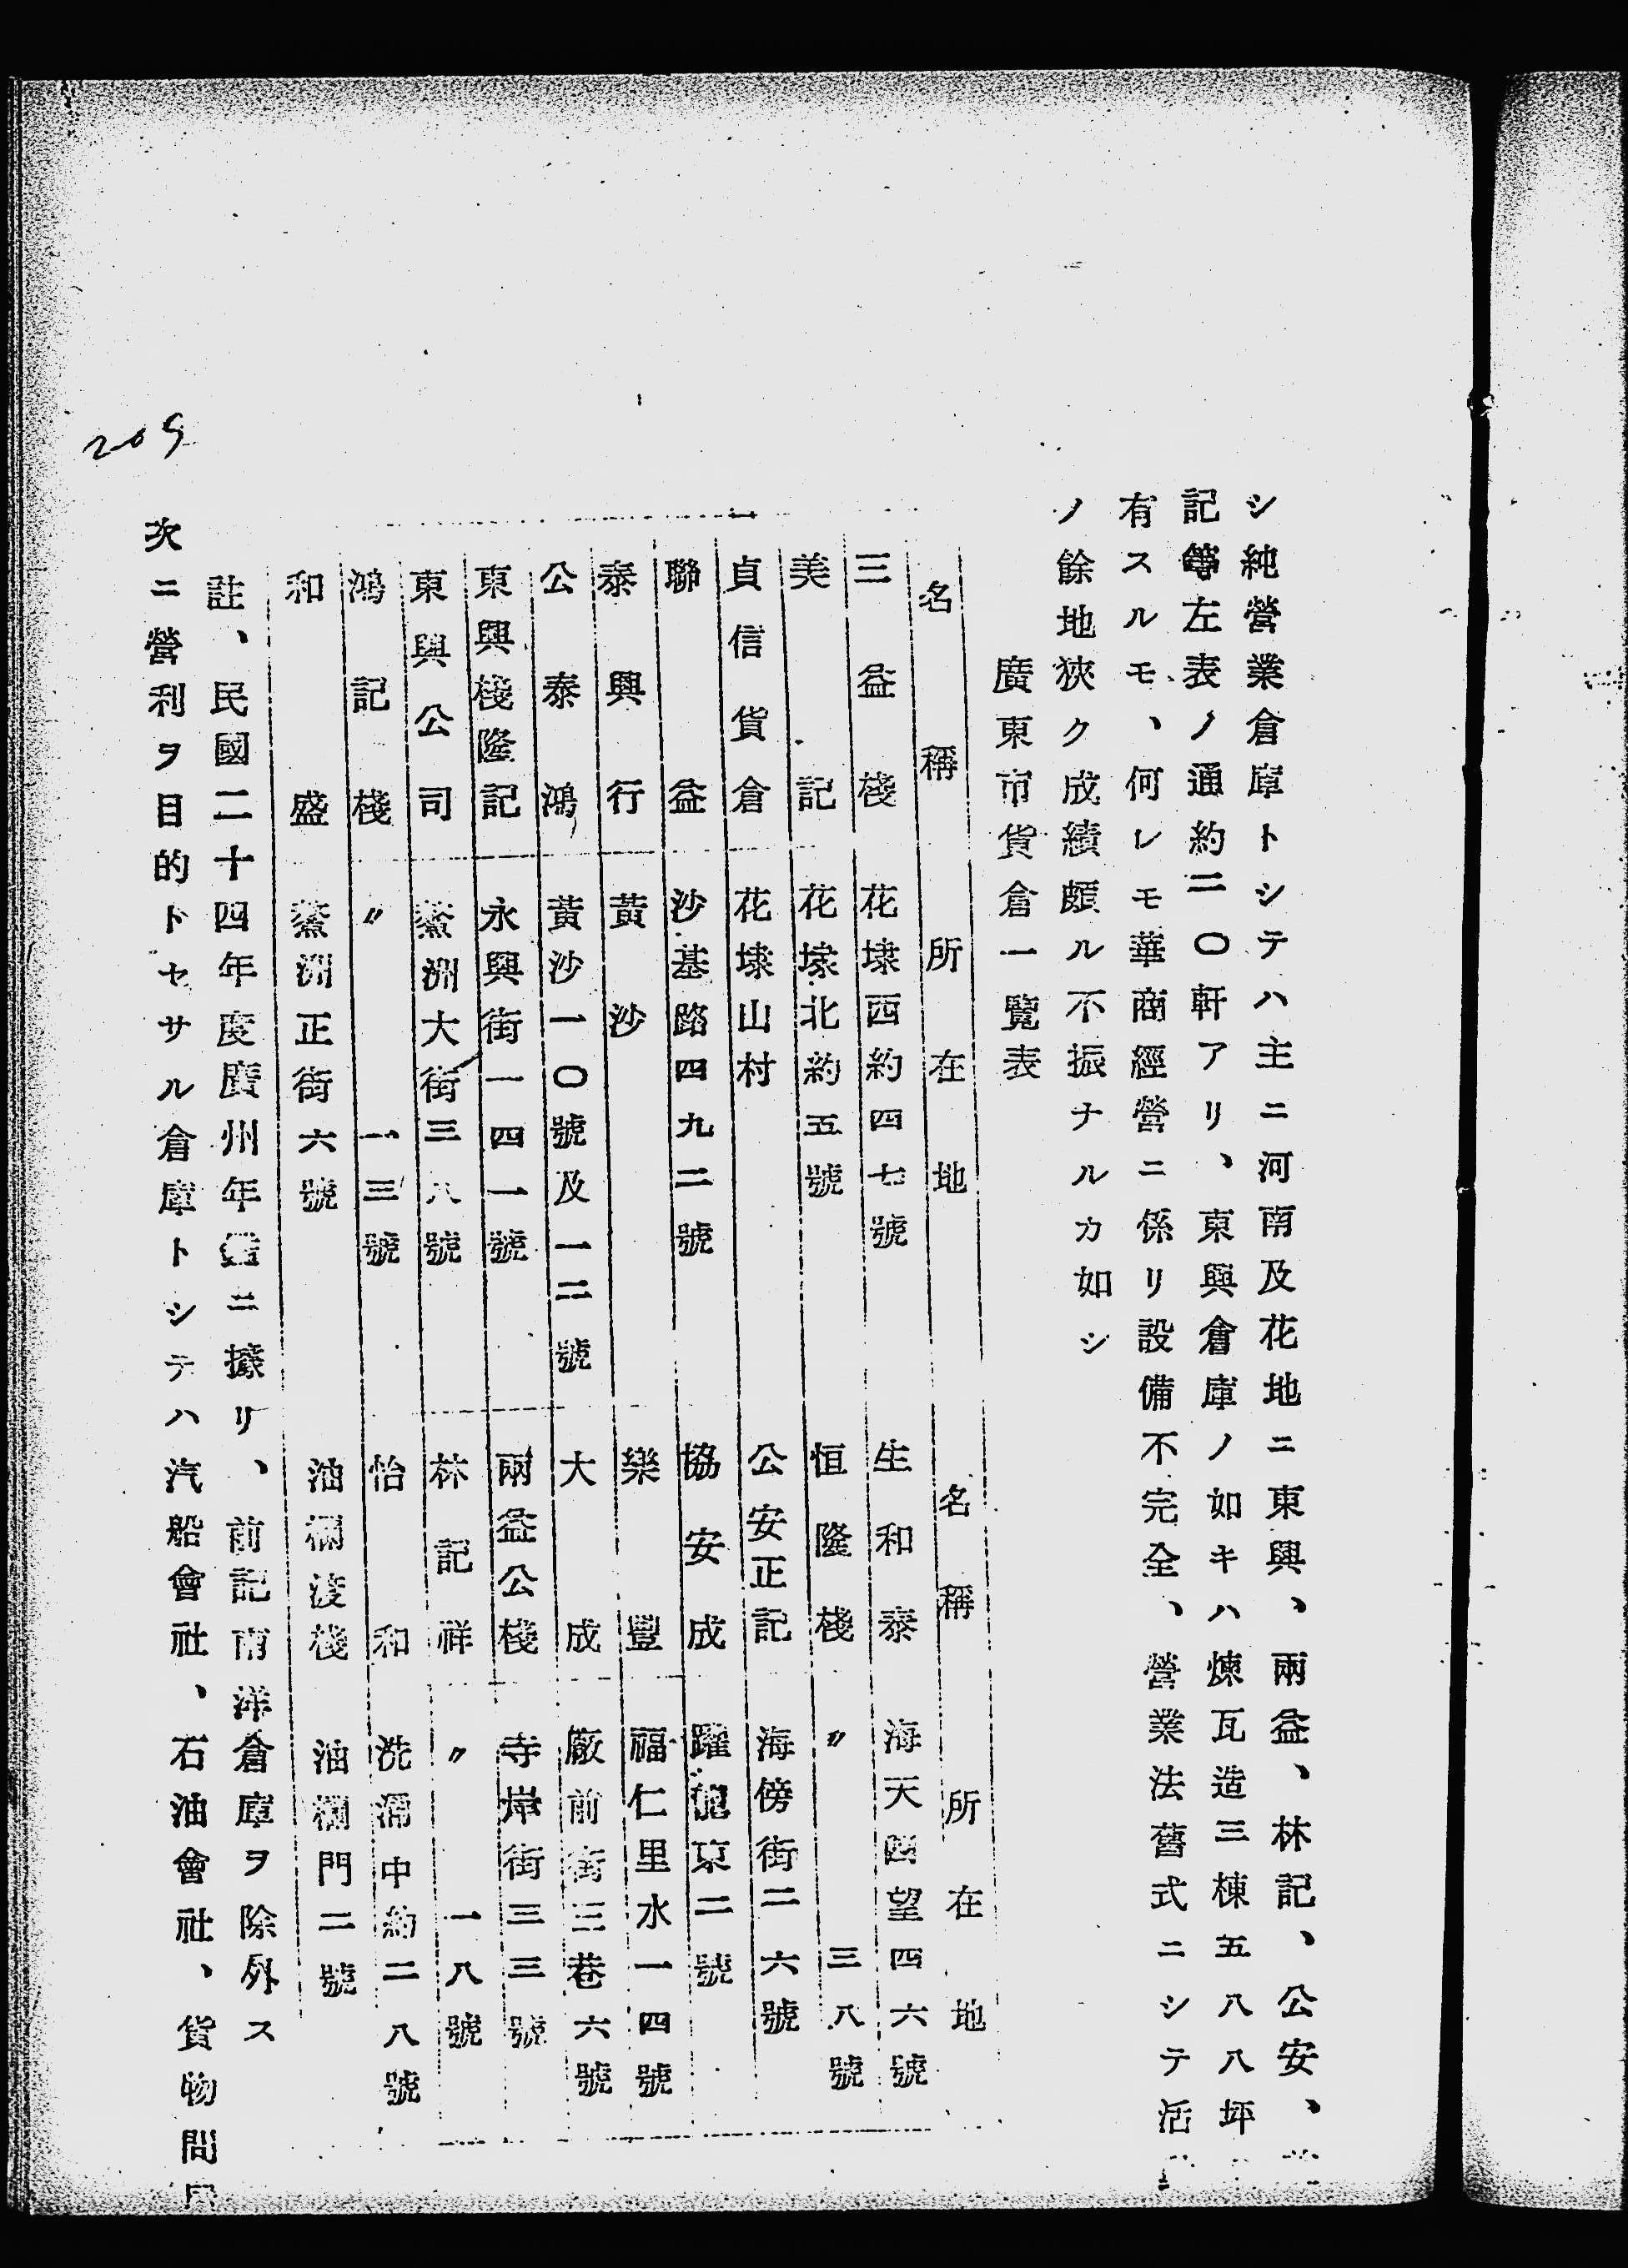 シ純營業倉庫トシテハ主ニ河南及花地ニ東興、兩益、林記、公安、
記等左表ノ通約二〇軒アリ、東興倉庫ノ如キハ煉瓦造三棟五八八坪
有スルモ、何レモ華商經營ニ係リ設備不完全、營業法舊式ニシテ活
ノ餘地狹ク成績頗ル不振ナルカ如シ
廣東市貨倉一覽表
名稱 所在地 名稱 所在地
三益棧 花埭西約四七號 生和泰 海天四望四六號
美記 花埭北約五號 恒隆棧 〃 三八號
貞信貨倉 花埭山村 公安正記 海傍街二六號
聯益 沙基路四九二號 協安成 躍龍東二號
泰興行 黃沙 樂豐 福仁里水一四號
公泰鴻 黃沙一〇號及一二號 大成 廠前街三巷六號
東興棧隆記 永興街一四一號 兩益公棧 寺岸街三三號
東興公司 鰲洲大街三八號 林記祥 〃 一八號
鴻記棧 〃 一三號 怡和 洗涌中約二八號
和盛 鰲洲正街六號 油欄浚棧 油欄門二號
註、民國二十四年度廣州年鑑ニ據リ、前記南洋倉庫ヲ除外ス
次ニ營利ヲ目的トセサル倉庫トシテハ汽船會社、石油會社、貨物問
209